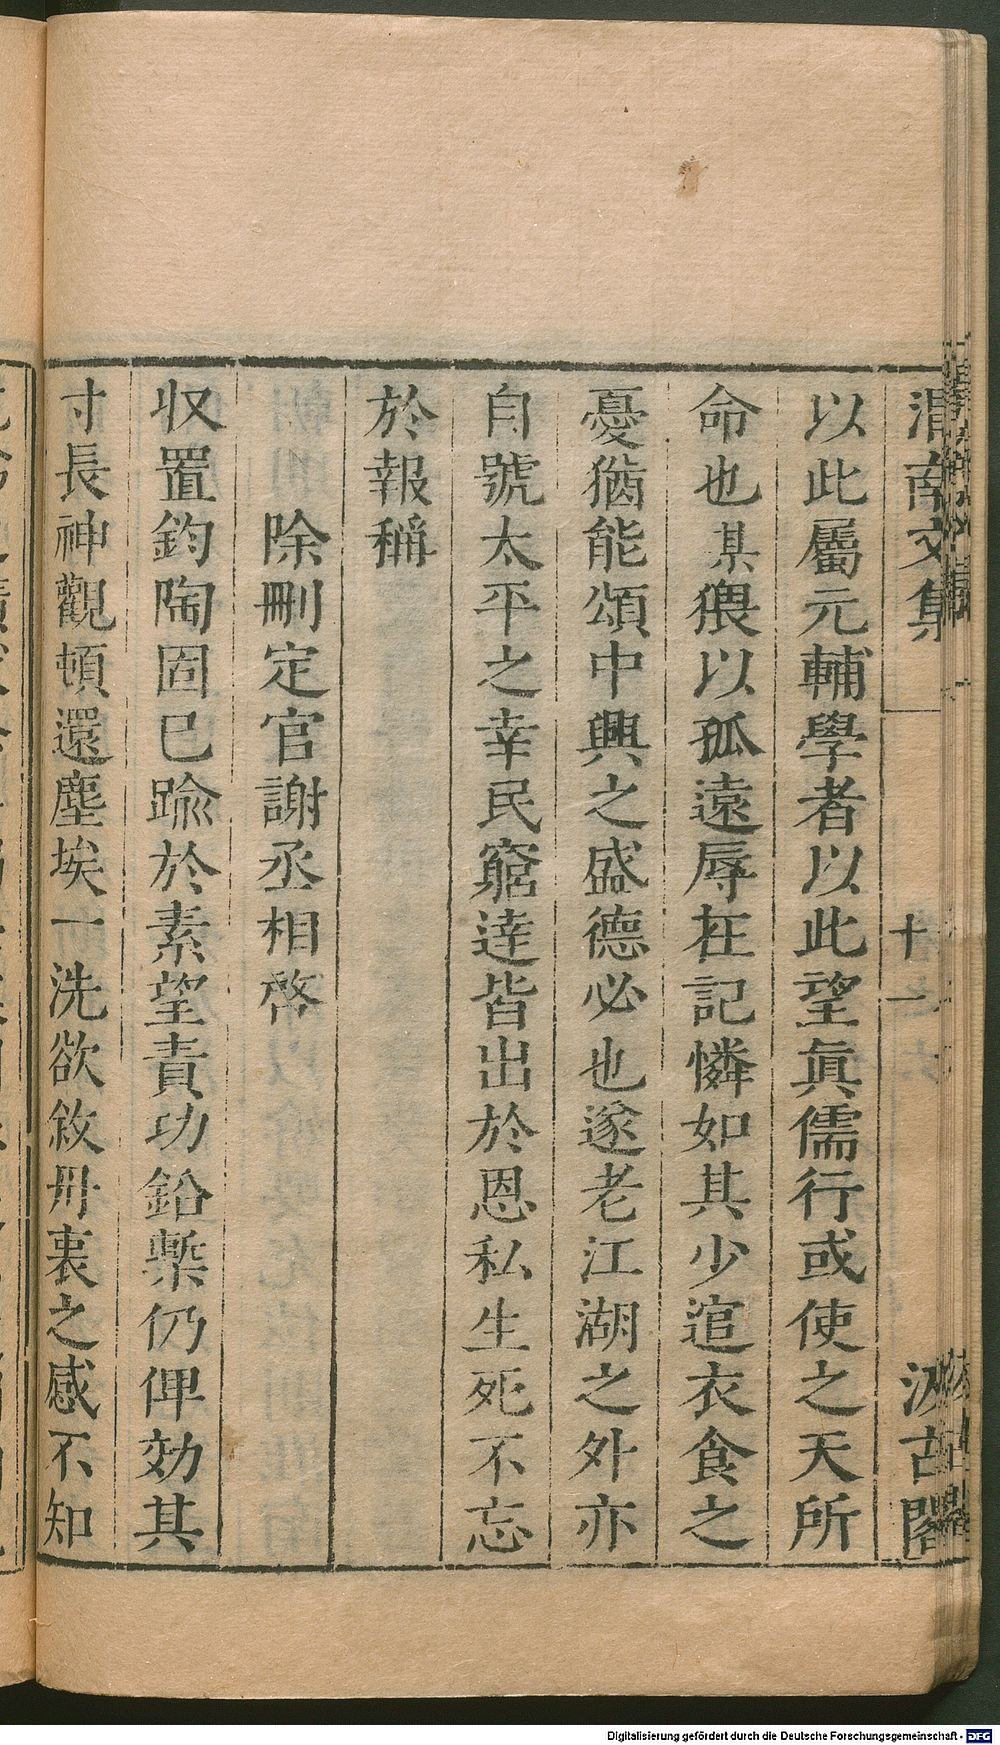 渭南文集
十一
汲古閣
以此屬元輔學者以此望眞儒行或使之天所
命也某猥以孤遠辱在記憐如其少逭衣食之
憂猶能頌中興之盛德必也遂老江湖之外亦
自號太平之幸民窮達皆出於恩私生死不忘
於報稱
除刪定官謝丞相啓
収置鈞陶固已踰於素望責功鉛槧仍俾効其
寸長神觀頓還塵埃一洗欲敘丹衷之感不知
Digitalisierung gefördert durch die Deutsche Forschungsgemeinschaft - DFG